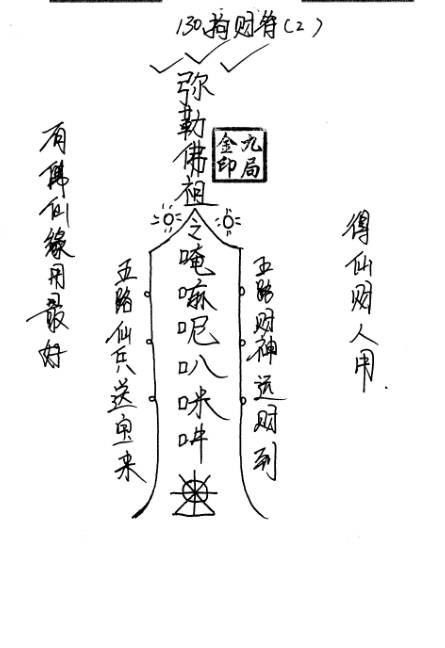 130.蒟财符(2)
弥勒佛祖
令唵嘛呢叭咪吽
九局
金印
五路财神运财到
五路仙兵送宝来
得仙财人用.
有佛仙缘用最好